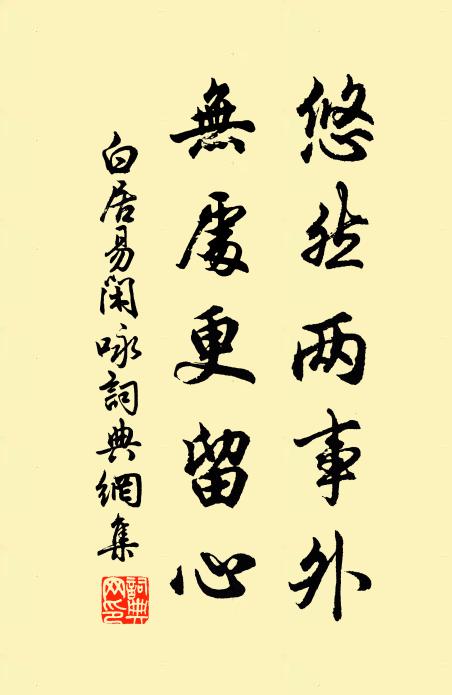 悠然两事外
無處更留心
白居易閑咏詞典網集
詞典网印